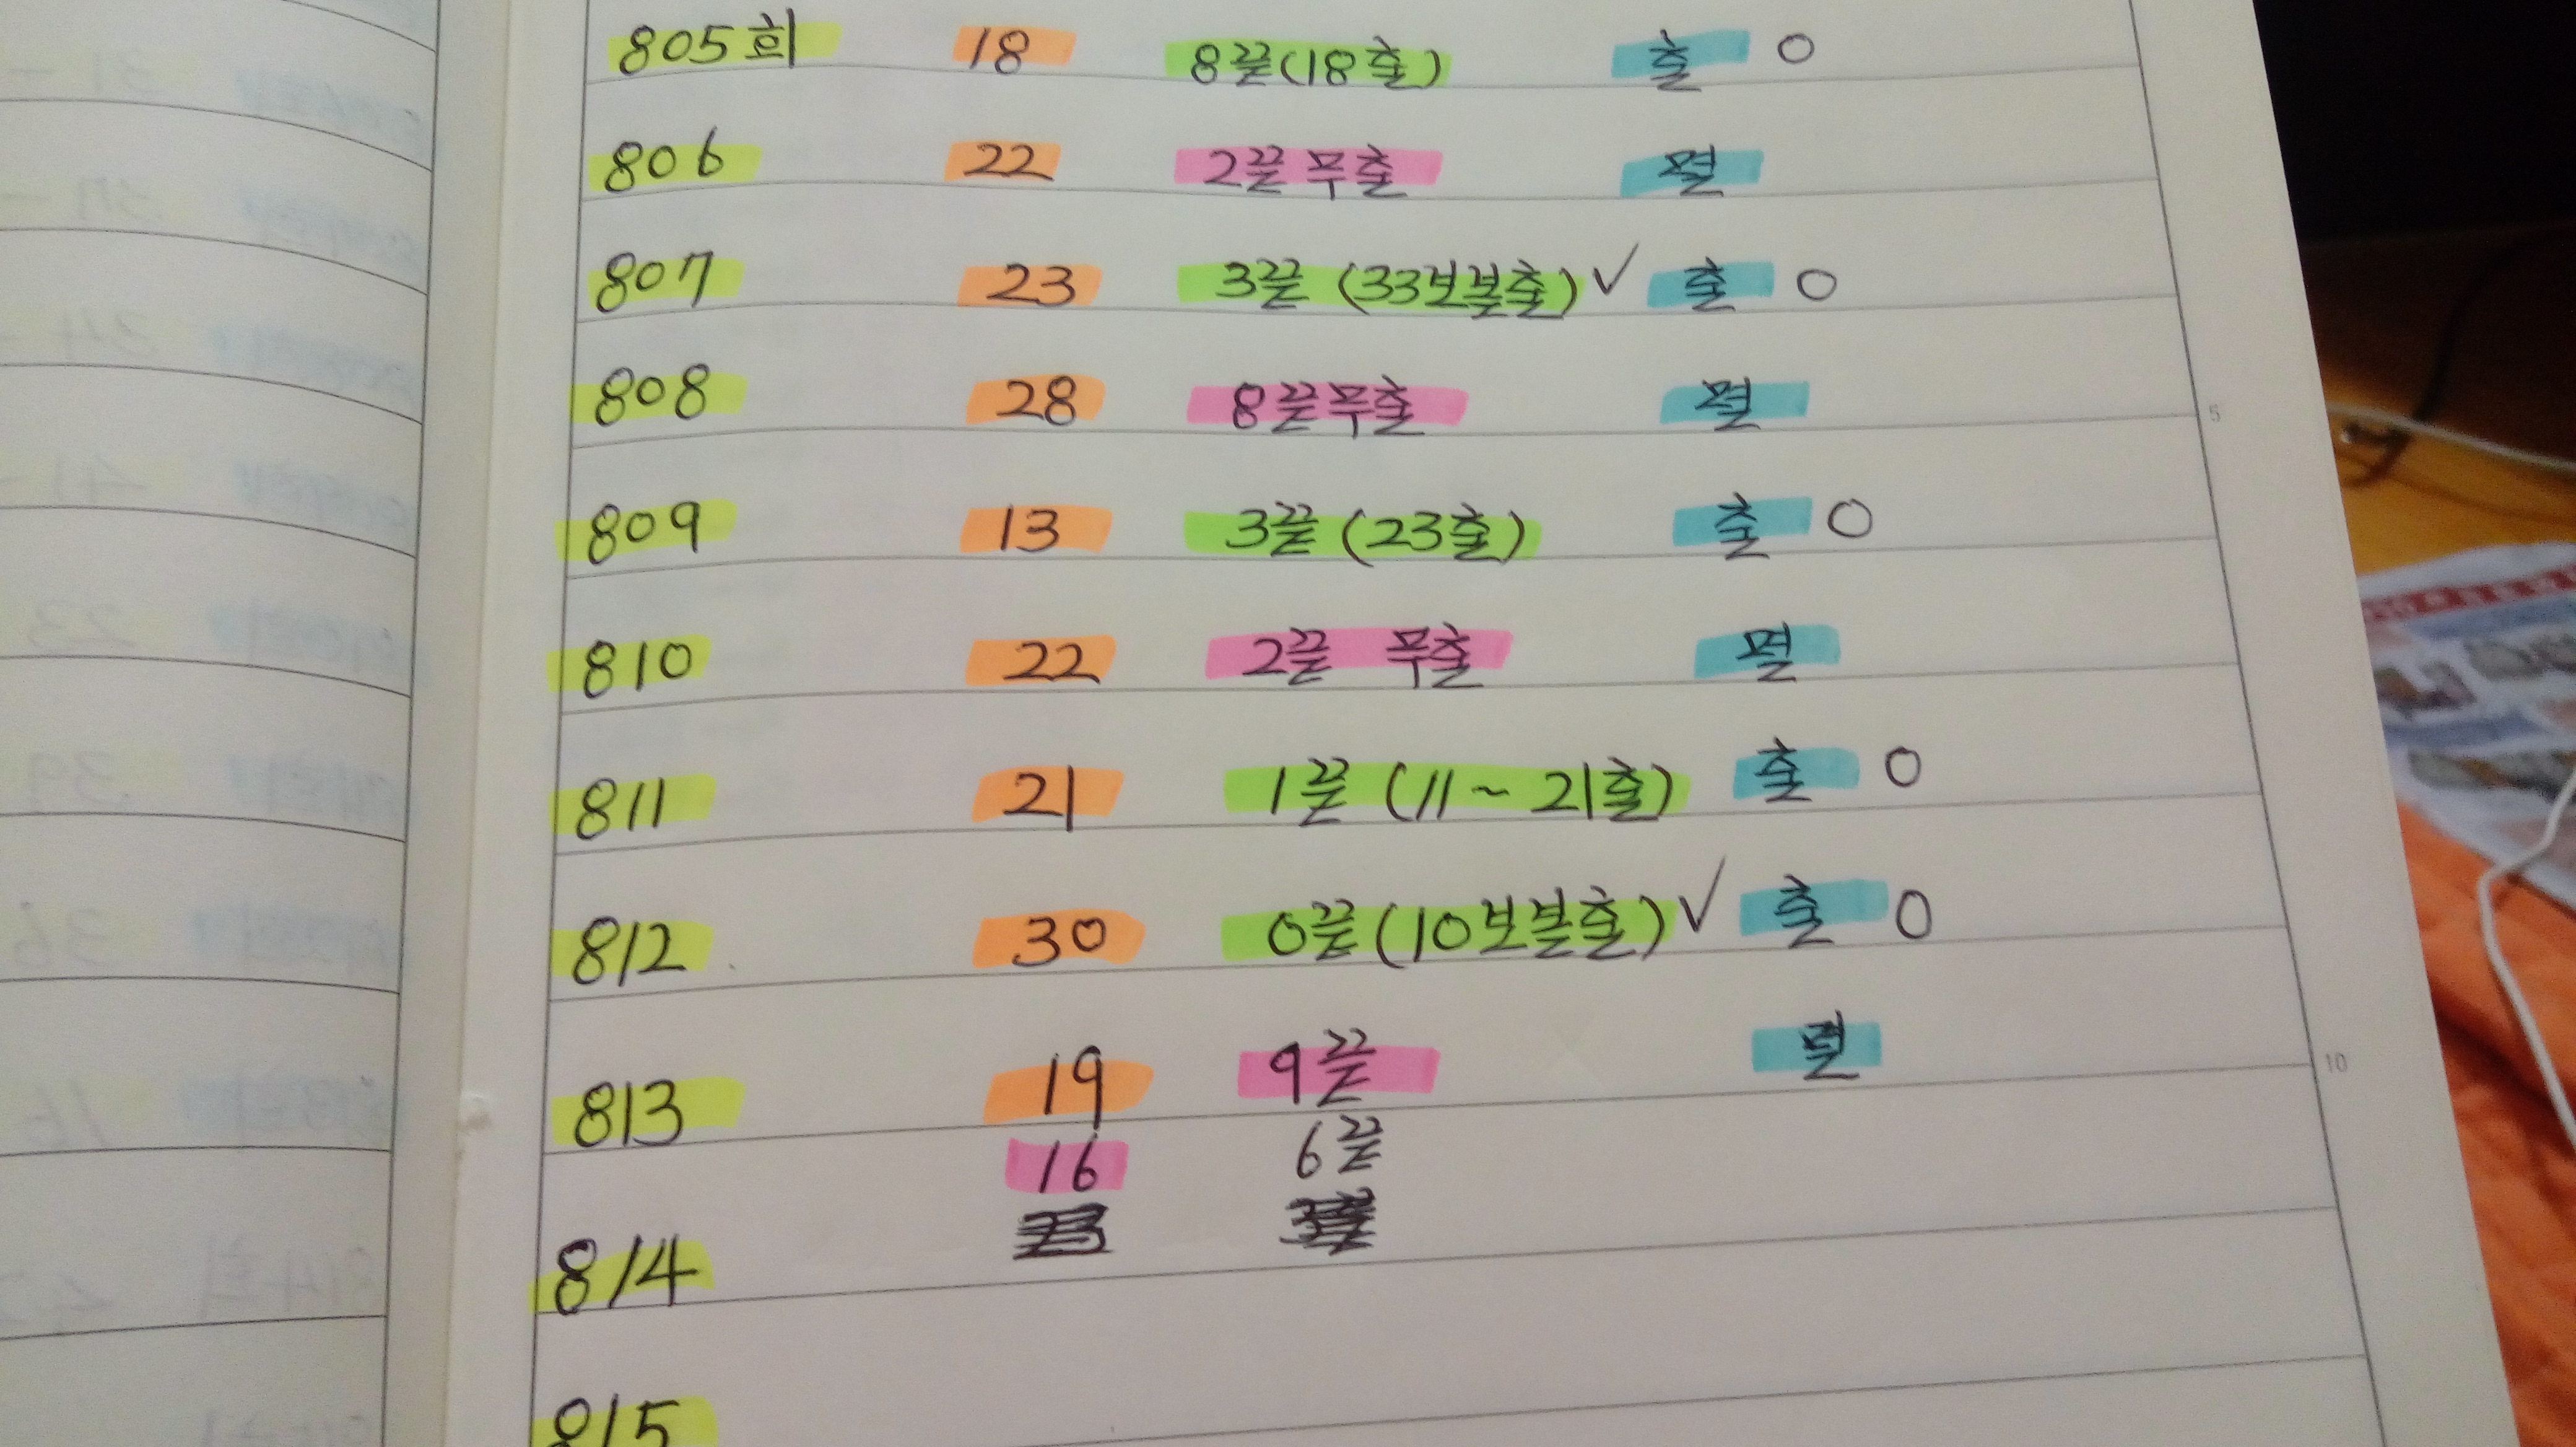 805회 18 8끝(18출) 출 O
806 22 2끝 무출 멸
807 23 3끝 (33보볼출) ✓ 출 O
808 28 8끝무출 멸
809 13 3끝 (23출) 출 O
810 22 2끝 무출 멸
811 21 1끝 (11~21출) 출 O
812 30 0끝(10보볼출) ✓ 출 O
813 19 9끝 멸
16 6끝
814
815
5
10